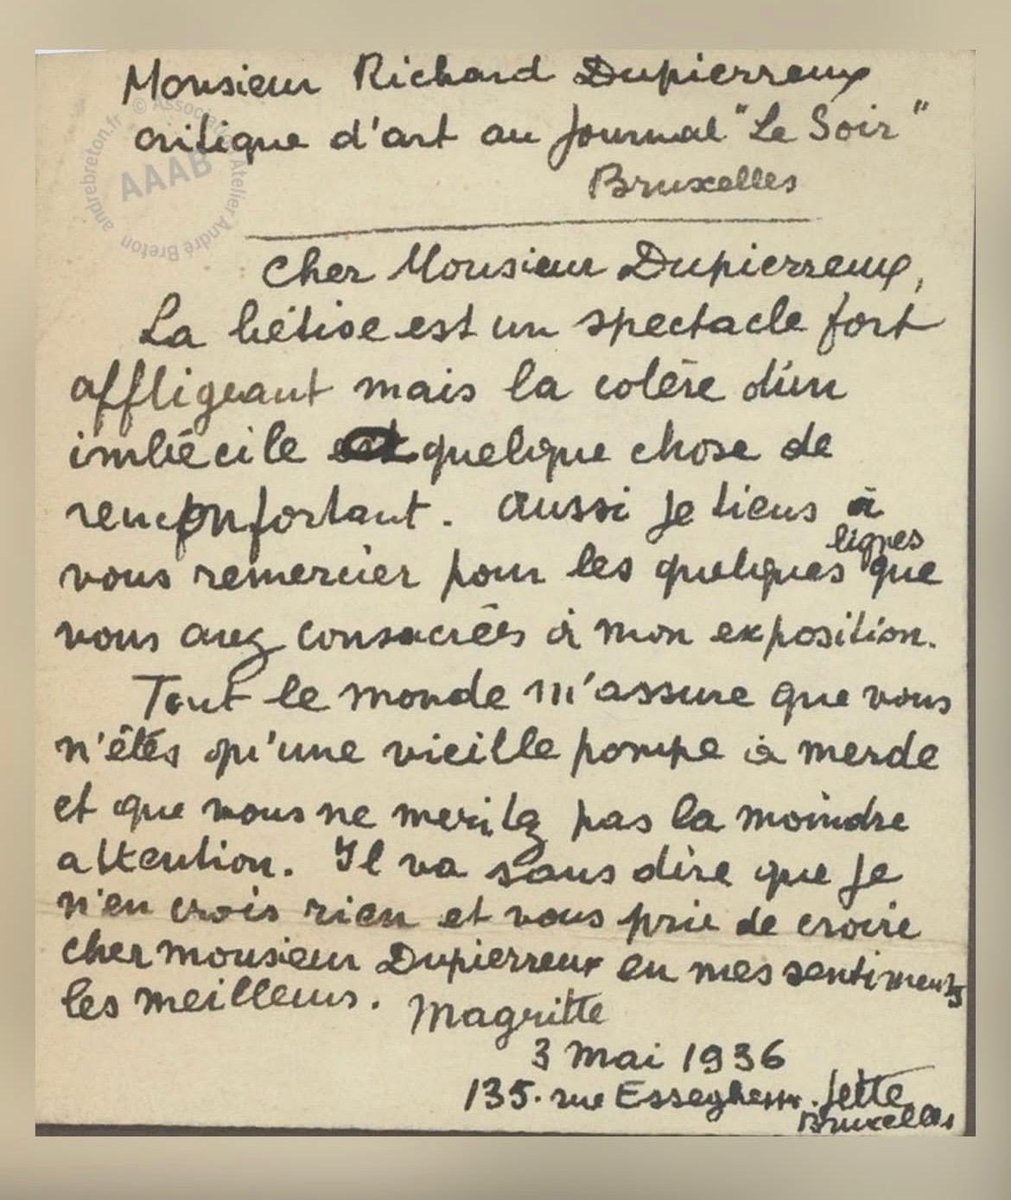 Monsieur Richard Dupierreux
critique d'art au Journal "Le Soir"
Bruxelles
© Association Atelier André Breton andrebreton.fr
AAAB
Cher Monsieur Dupierreux,
La bétise est un spectacle fort
affligeant mais la colère d'un
imbécile quelque chose de
reconfortant. Aussi je tiens à
lignes
vous remercier pour les quelques que
vous avez consacrées à mon exposition.
Tout le monde m'assure que vous
n'êtes qu'une vieille pompe à merde
et que vous ne meritez pas la moindre
attention. Il va sans dire que je
n'en crois rien et vous prie de croire
cher monsieur Dupierreux en mes sentiments
les meilleurs. Magritte
3 mai 1936
135. rue Esseghem. Jette
Bruxelles